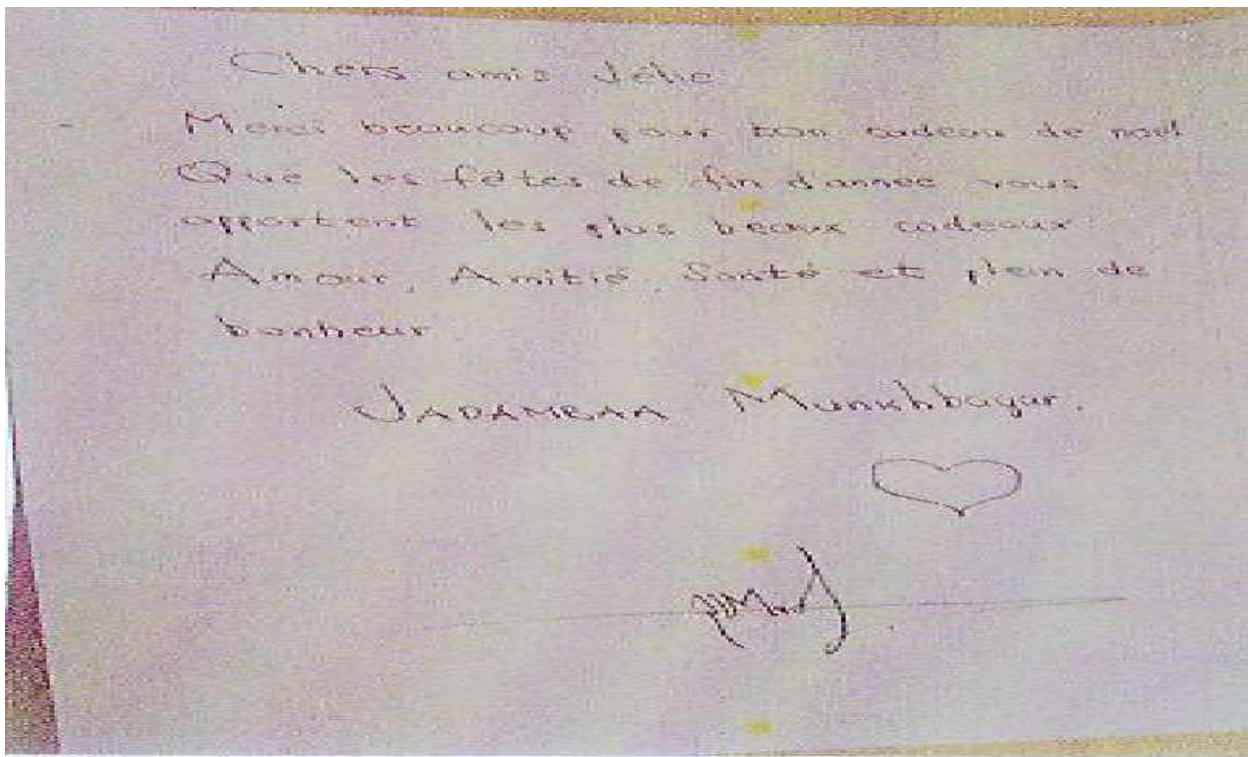 Chers amis
Merci beaucoup pour ton cadeau de noel
Que les fêtes de fin d'année vous
apportent les plus beaux cadeaux
Amour, Amitié, Santé et plein de
bonheur
JADAMBAA Munkhbayar.